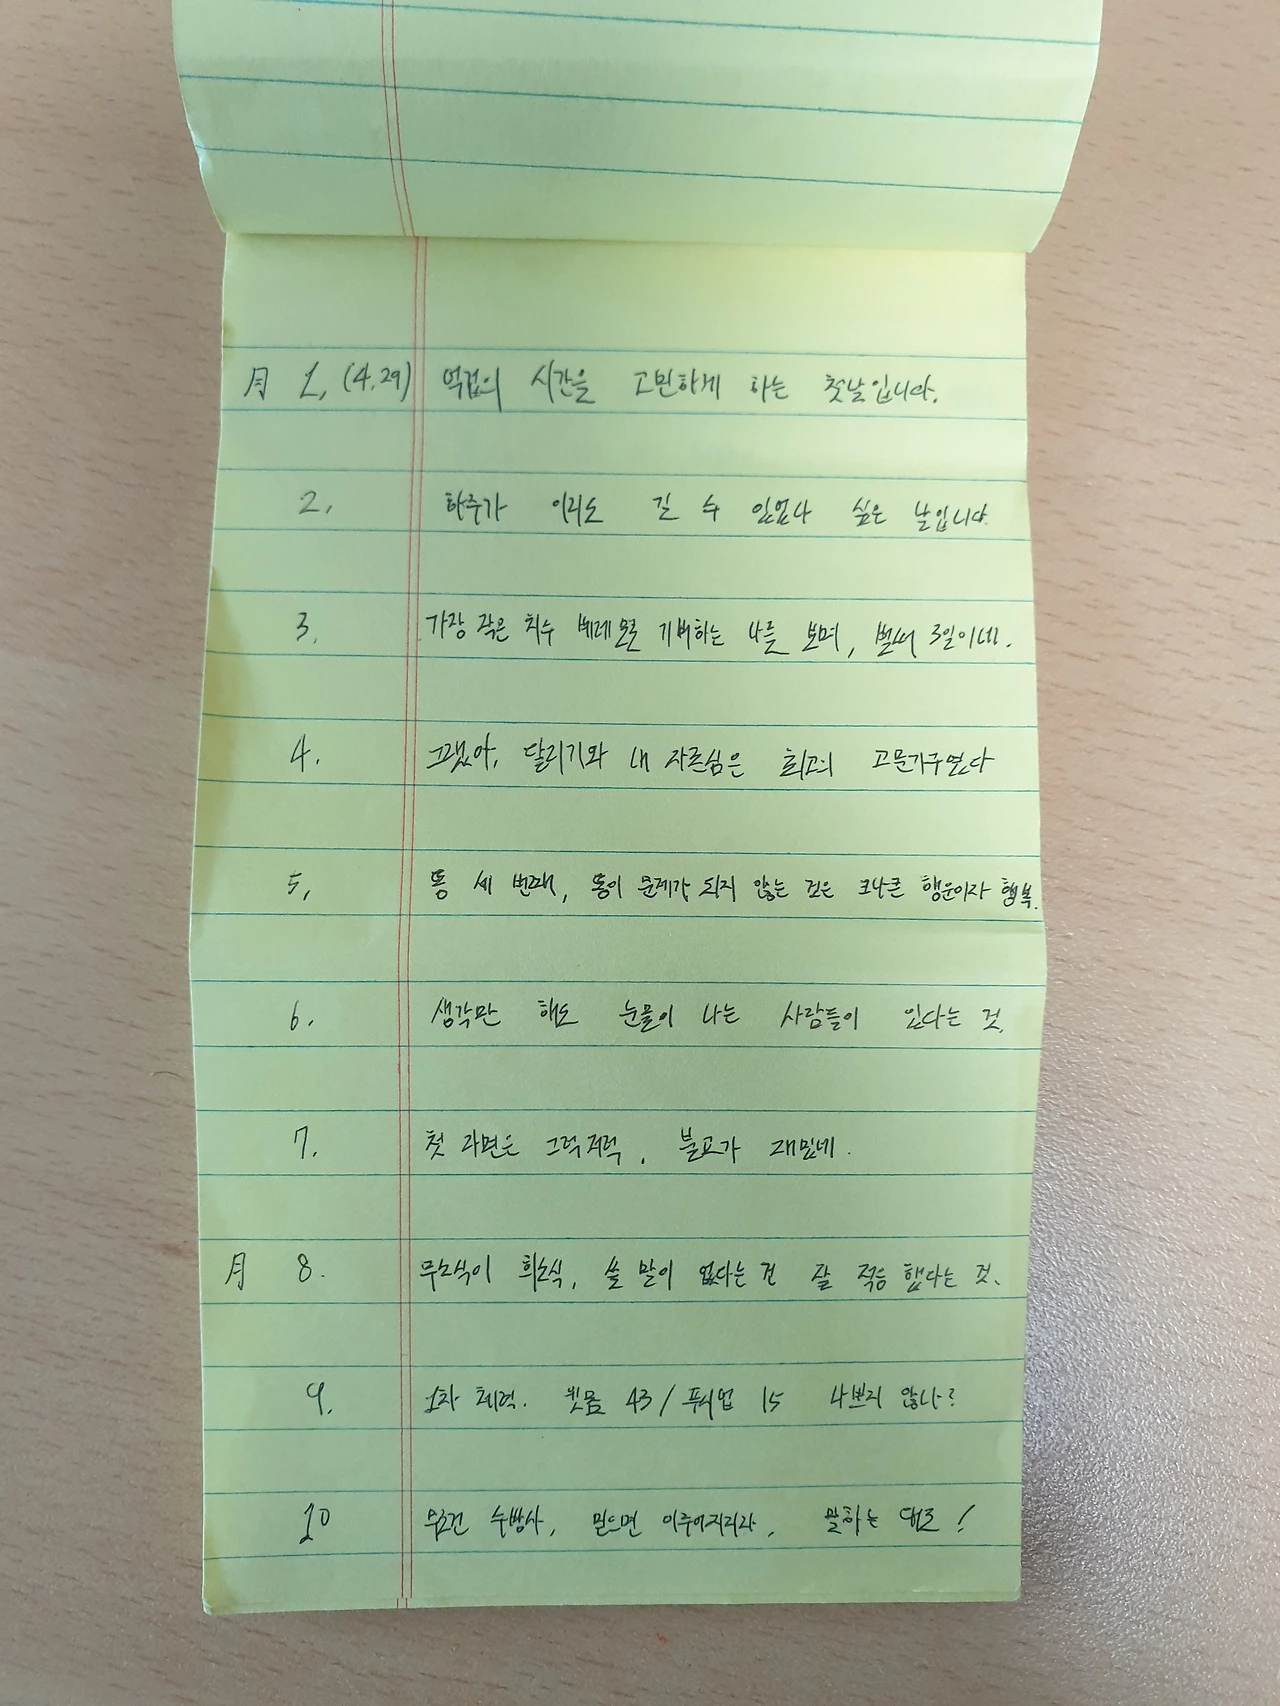 月 1. (4.29) 억겁의 시간을 고민하게 하는 첫날입니다.
2. 하루가 이리도 길 수 있었나 싶은 날입니다.
3. 가장 작은 치수 베레모로 기뻐하는 나를 보며, 벌써 3일이네.
4. 그랬어, 달리기와 내 자존심은 최고의 고문기구였다
5. 똥 세 번째, 똥이 문제가 되지 않는 것은 크나큰 행운이자 행복.
6. 생각만 해도 눈물이 나는 사람들이 있다는 것.
7. 첫 라면은 그럭저럭. 불교가 재밌네.
月 8. 무소식이 희소식, 쓸 말이 없다는 건 잘 적응했다는 것.
9. 1차 체력. 윗몸 43 / 푸시업 15 나쁘지 않나?
10 무조건 수방사, 믿으면 이루어지리라, 말하는 대로!